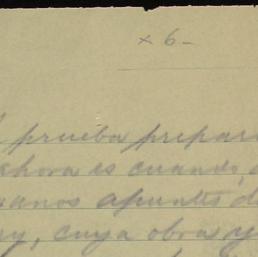 x 6 -
prueba prepar
ahora es cuando,
apuntes d
cuya obra y